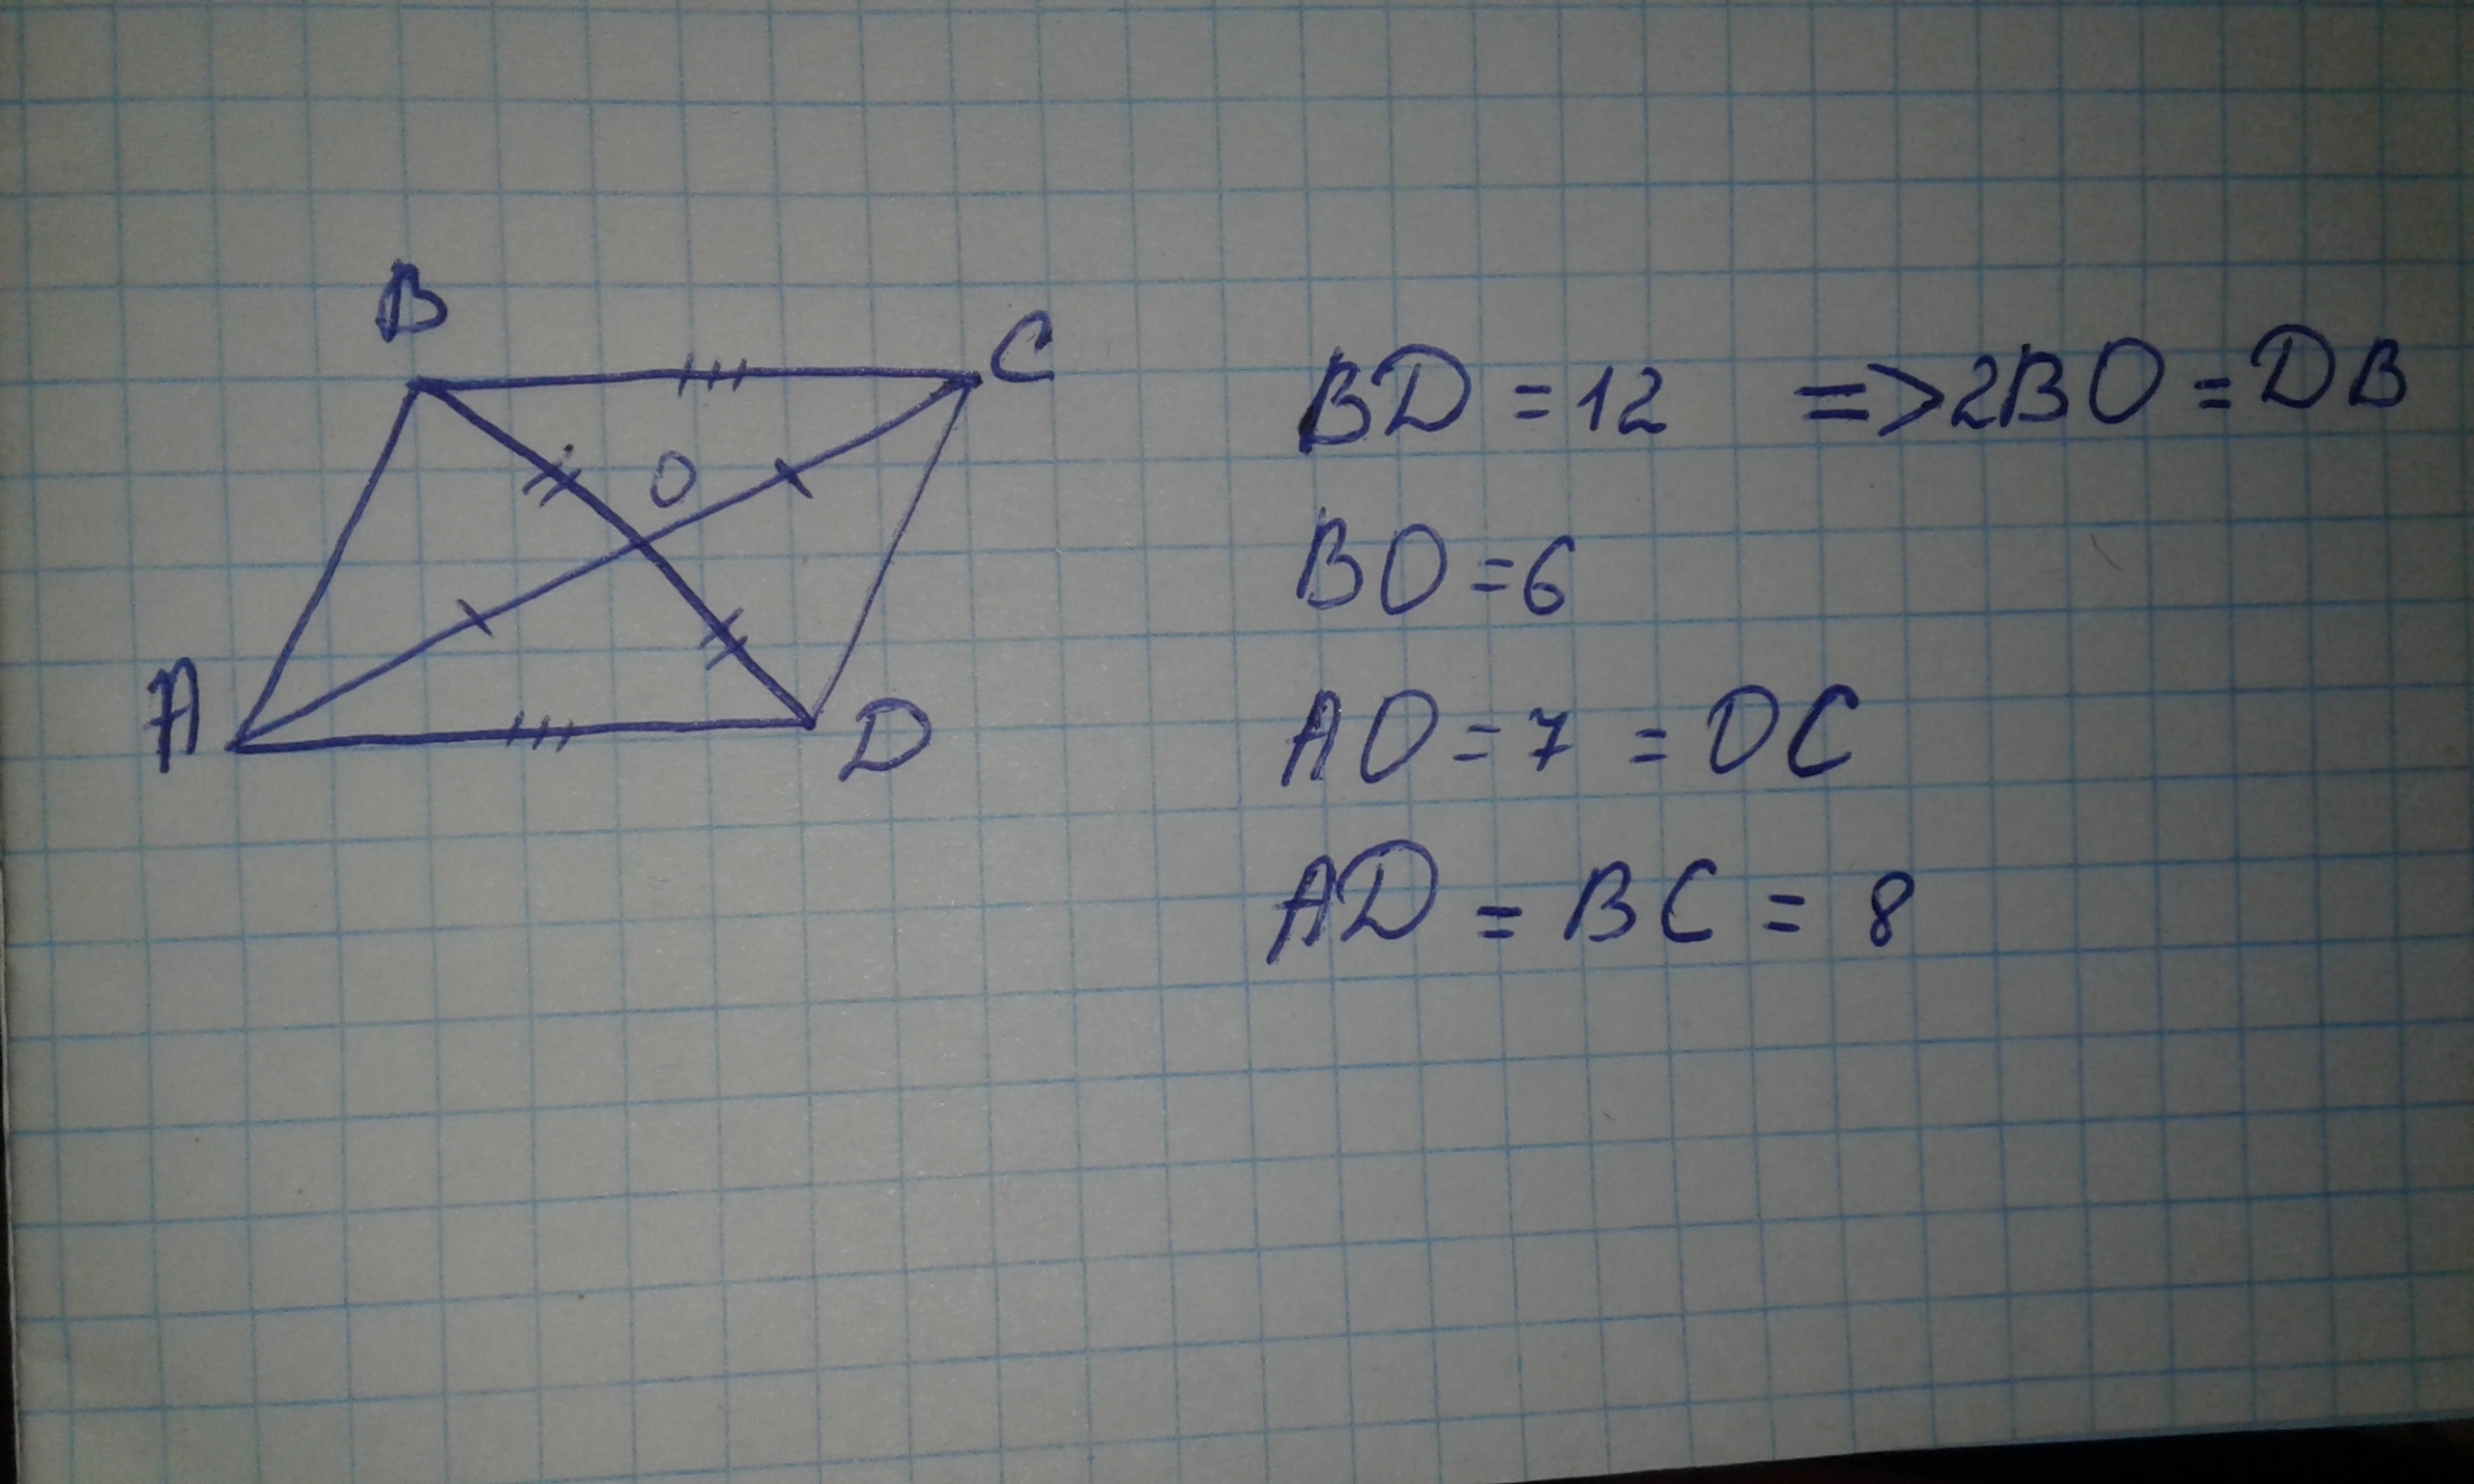 B
C
O
A
D
BD = 12 => 2BO = DB
BO = 6
AO = 7 = OC
AD = BC = 8